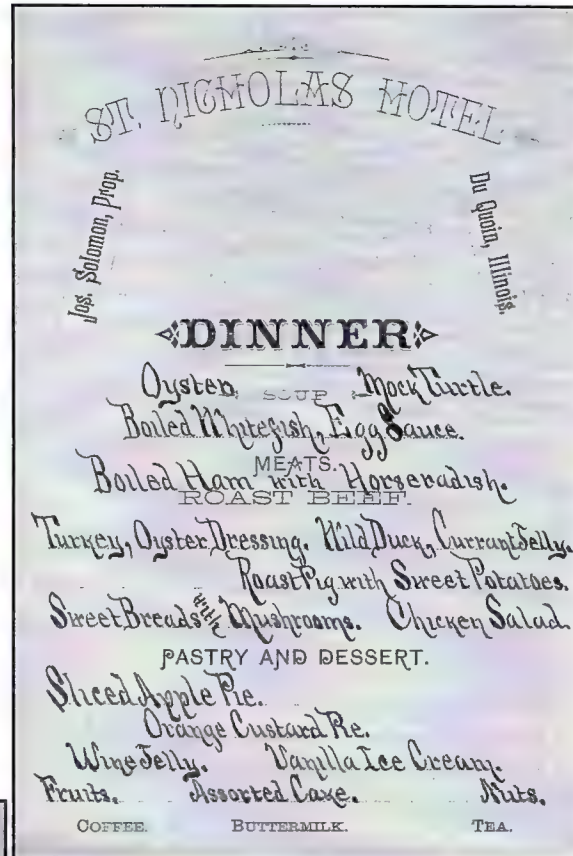 ST. NICHOLAS HOTEL
Jos. Solomon, Prop.
Du Quoin, Illinois.
DINNER
Oyster. SOUP Mock Turtle.
Boiled Whitefish, Egg Sauce.
MEATS.
Boiled Ham with Horseradish.
ROAST BEEF.
Turkey, Oyster Dressing. Wild Duck, Currant Jelly.
Roast Pig with Sweet Potatoes.
Sweet Breads with Mushrooms. Chicken Salad.
PASTRY AND DESSERT.
Sliced Apple Pie.
Orange Custard Pie.
Wine Jelly. Vanilla Ice Cream.
Fruits. Assorted Cake. Nuts.
COFFEE. BUTTERMILK. TEA.